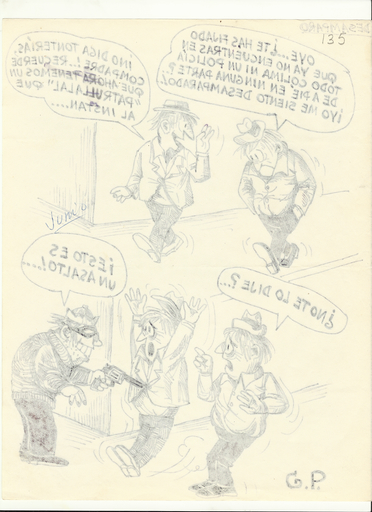 DESAMPARO
135
OYE...¿TE HAS FIJADO
QUE YA NO ENCUENTRAS EN
TODO COLIMA NI UN POLICÍA
DE A PIE EN NINGUNA PARTE?
¡YO ME SIENTO DESAMPARADO!
¡NO DIGA TONTERIAS,
COMPADRE...! RECUERDE
QUE AHORA TENEMOS UN
QUE
AL INSTAN.....
Junio
¡ESTO ES
UN ASALTO!...
¿NO TE LO DIJE?...
G.P.